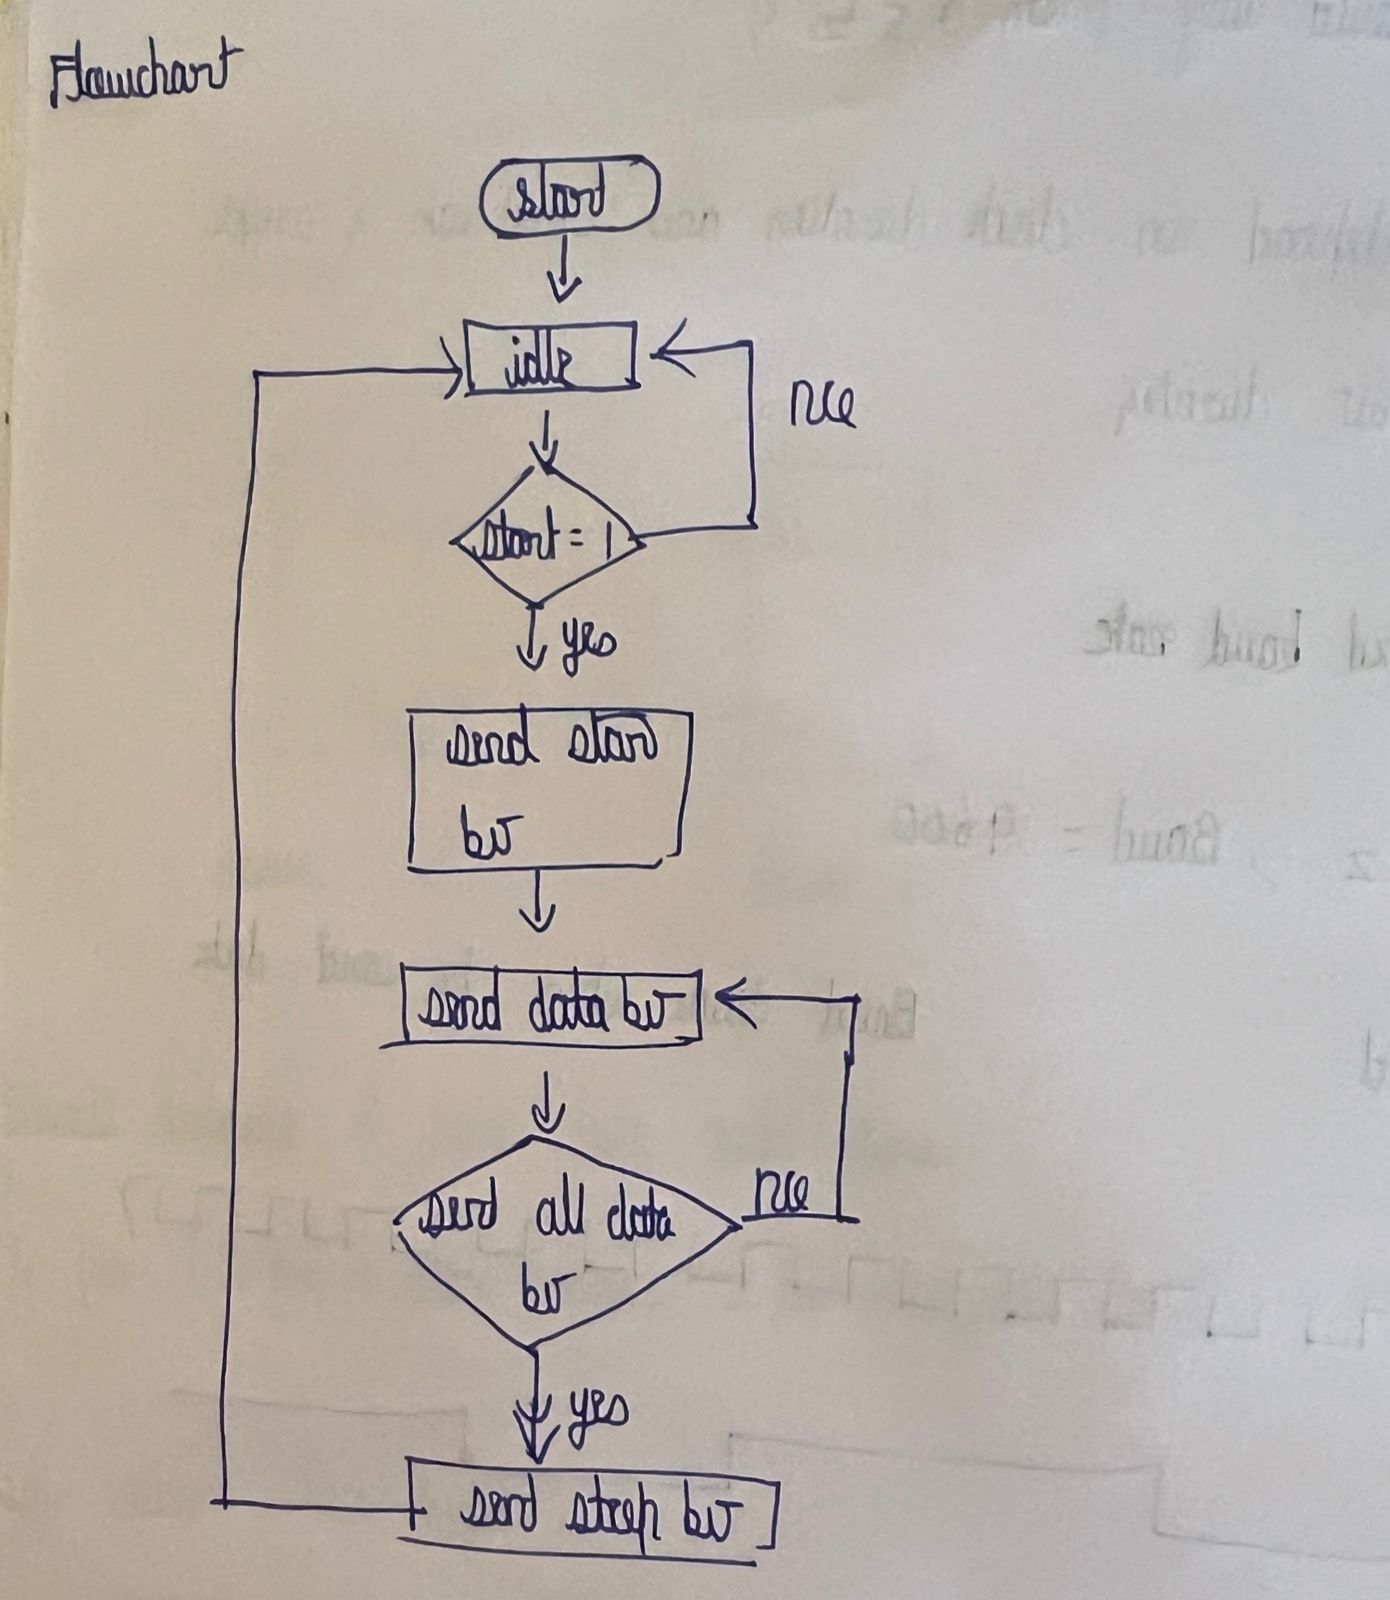 Flowchart
start
idle
no
start = 1
yes
send start
bit
send data bit
send all data
no
bit
yes
send stop bit